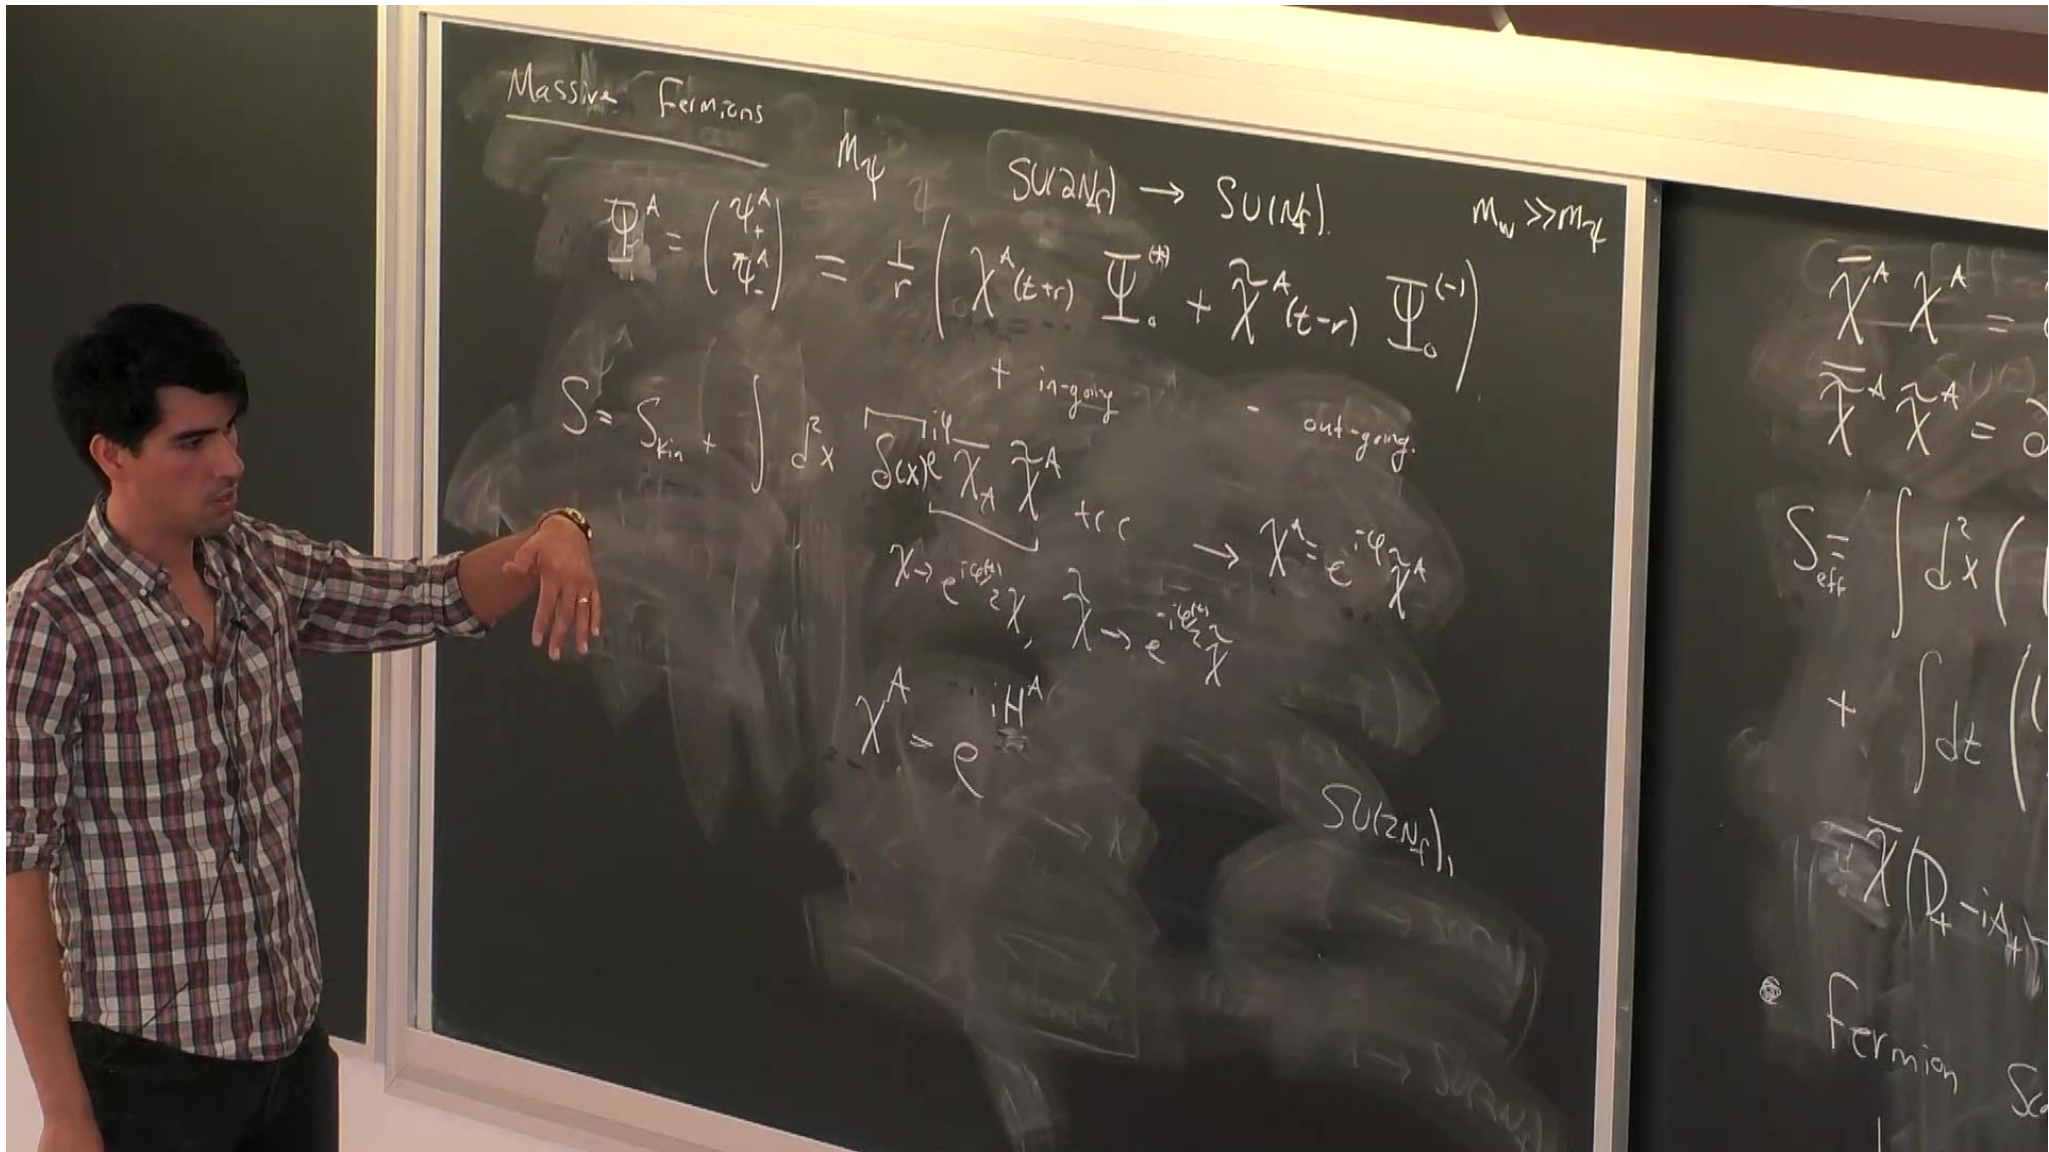 Massive Fermions
m_ψ SU(2N_f) → SU(N_f). m_w >> m_ψ
Ψ^A = (ψ_+^A ψ_-^A) = 1/r ( χ^A (t+r) Ψ_0^(+) + χ̃^A (t-r) Ψ_0^(-) )
+ in-going - out-going.
S = S_kin + ∫ d²x δ(x) e^{iφ} χ̄_A χ̃^A + c.c → χ^A = e^{-iφ} χ̃^A
χ → e^{iφ(t)/2} χ, χ̃ → e^{-iφ(t)/2} χ̃
χ^A = e^{iH^A}
SU(2N_f)_1
χ̄^A χ^A =
χ̃̄^A χ̃^A = ∂
S_eff = ∫ d²x (
+ ∫ dt (
χ̄ (D_+ - iA_+
• Fermion Sc